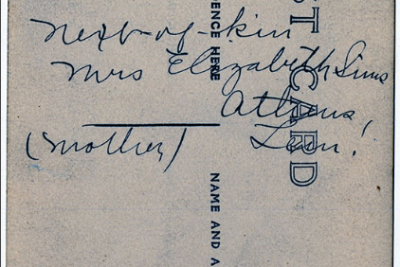 Next-of-skin
Mrs Elizabeth Sims
Athens
(mother) Tenn!
ST CARD
DENCE HERE
NAME AND A